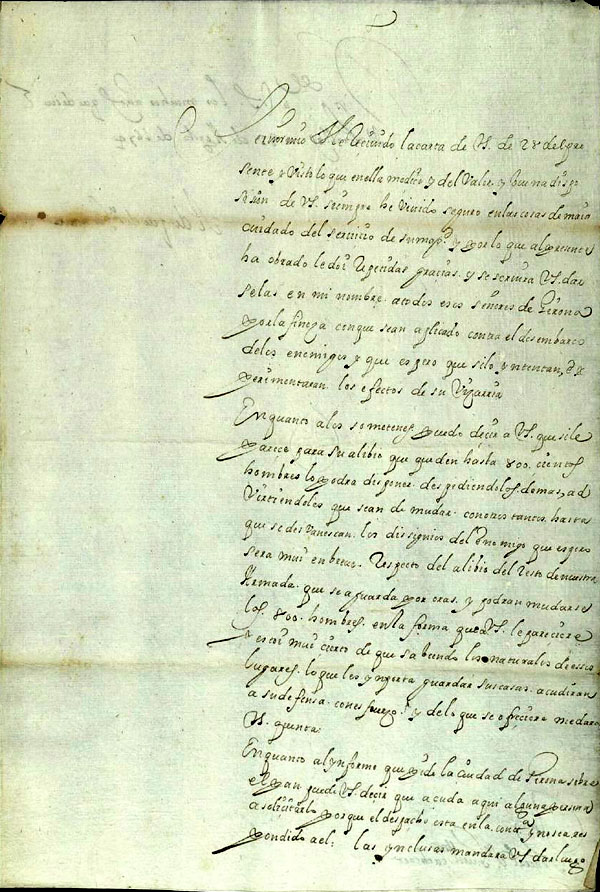 Señor mio He Receuido la carta de VS. de 28 del pre
sente, y Visto lo que en ella me dice, y del Valor, y buena dispo
sicion de VS. siempre he Viuido seguro en las cosas de maior
cuidado del seruicio de su mag.d y por lo que al presente
ha obrado le doi Repetidas gracias, y se seruira VS. dar
selas en mi nombre a todos esos señores de Girona
por la fineza con que se an aplicado contra el desembarco
de los enemigos, y que espero que si lo yntentan, ex
perimentaran los efectos de su Vizarria
En quanto a los sometenes puedo decir a VS. que si le
parece para su alibio que queden hasta 800. cientos
hombres lo podra disponer despediendo los demas, ad
Virtiendoles que se an de mudar con otros tantos hasta
que se desvanescan los dissignios del enemigo que espero
sera mui en breue, Respecto del alibio del Resto de nuestra
Armada que se aguarda por oras, y podran mudarse
los 800. hombres en la forma que a VS. le pareciere
y estoi mui cierto de que sabiendo los naturales de essos
lugares lo que les ynporta guardar sus casas acudiran
a su defensa con esfuerzo, y de lo que se ofreciere me dara
VS. quenta
En quanto al ynforme que pide la Ciudad de Girona sobre
el pan puede VS. decir que acuda aqui alguna persona
a solicitarlo porque el despacho esta en la y no se a res
pondido a el; las ynclusas mandara VS. dar luego